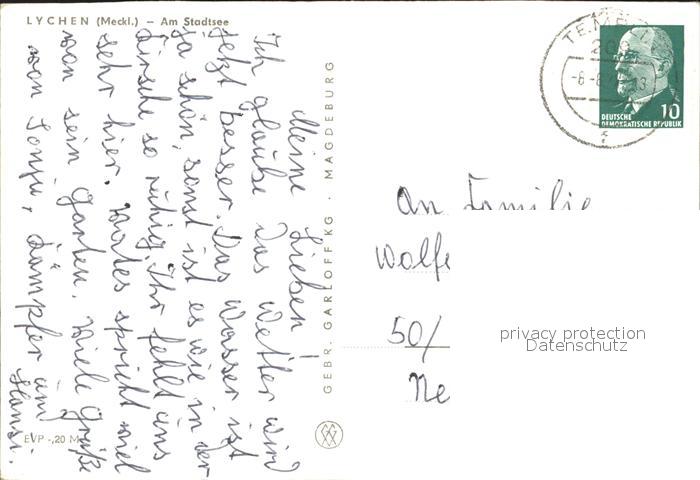 LYCHEN (Meckl.) — Am Stadtsee
Meine Lieben!
Ich glaube das Wetter wird
jetzt besser. Das Wasser ist
ja schön, sonst ist es wie in der
so ruhig. Ihr fehlt uns
sehr hier. spricht viel
von sein Garten. Viele Grüße
von Sonja, und
Hansi.
EVP -,20 M
GEBR. GARLOFF KG · MAGDEBURG
TEMPLIN
DEUTSCHE
DEMOKRATISCHE REPUBLIK
10
An Familie
Wolfe
50/
Ne
privacy protection
Datenschutz